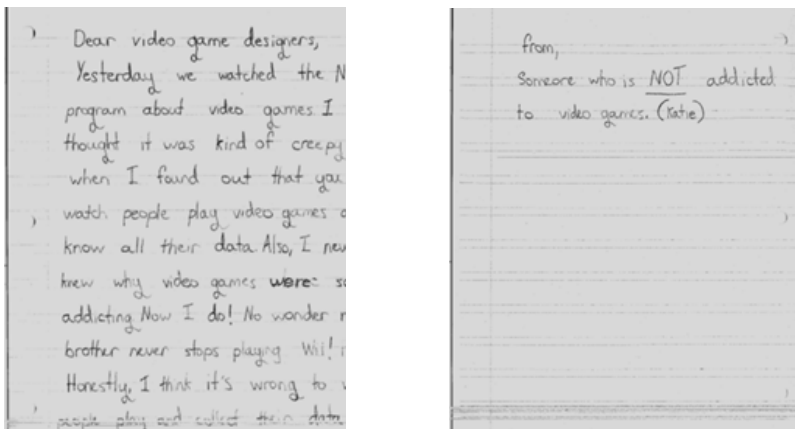 Dear video game designers,
Yesterday we watched the N
program about video games I
thought it was kind of creepy
when I found out that you
watch people play video games
know all their data. Also, I
knew why video games were
addicting Now I do! No wonder
brother never stops playing Wii!
Honestly, I think it's wrong to
people play and collect their data
from,
Someone who is NOT addicted
to video games. (Katie)